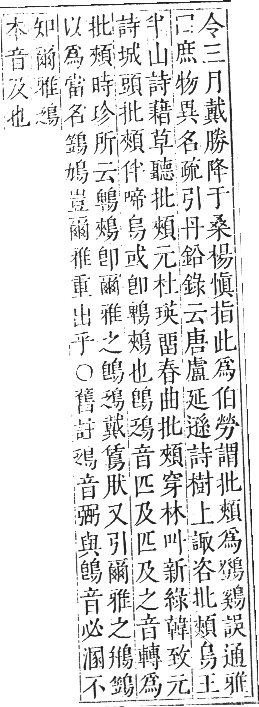 令三月戴勝降于桑楊愼指此爲伯勞謂批頰爲鷄誤通雅
曰庶物異名疏引丹鉛錄云唐盧延遜詩樹上諏咨批頰鳥王
半山詩藉草聽批頰元杜瑛留春曲批頰穿林叫新綠韓致元
詩城頭批頰伴啼烏或卽鵯鵊也鴔鵖音匹及匹及之音轉爲
批頰時珍所云鵯鵊卽爾雅之鴔鵖戴鵀狀又引爾雅之鵧鷑
以爲當名鷑鳩豈爾雅重出乎○舊註鵖音弼與鴔音必溷不
知爾雅鵖
本音及也